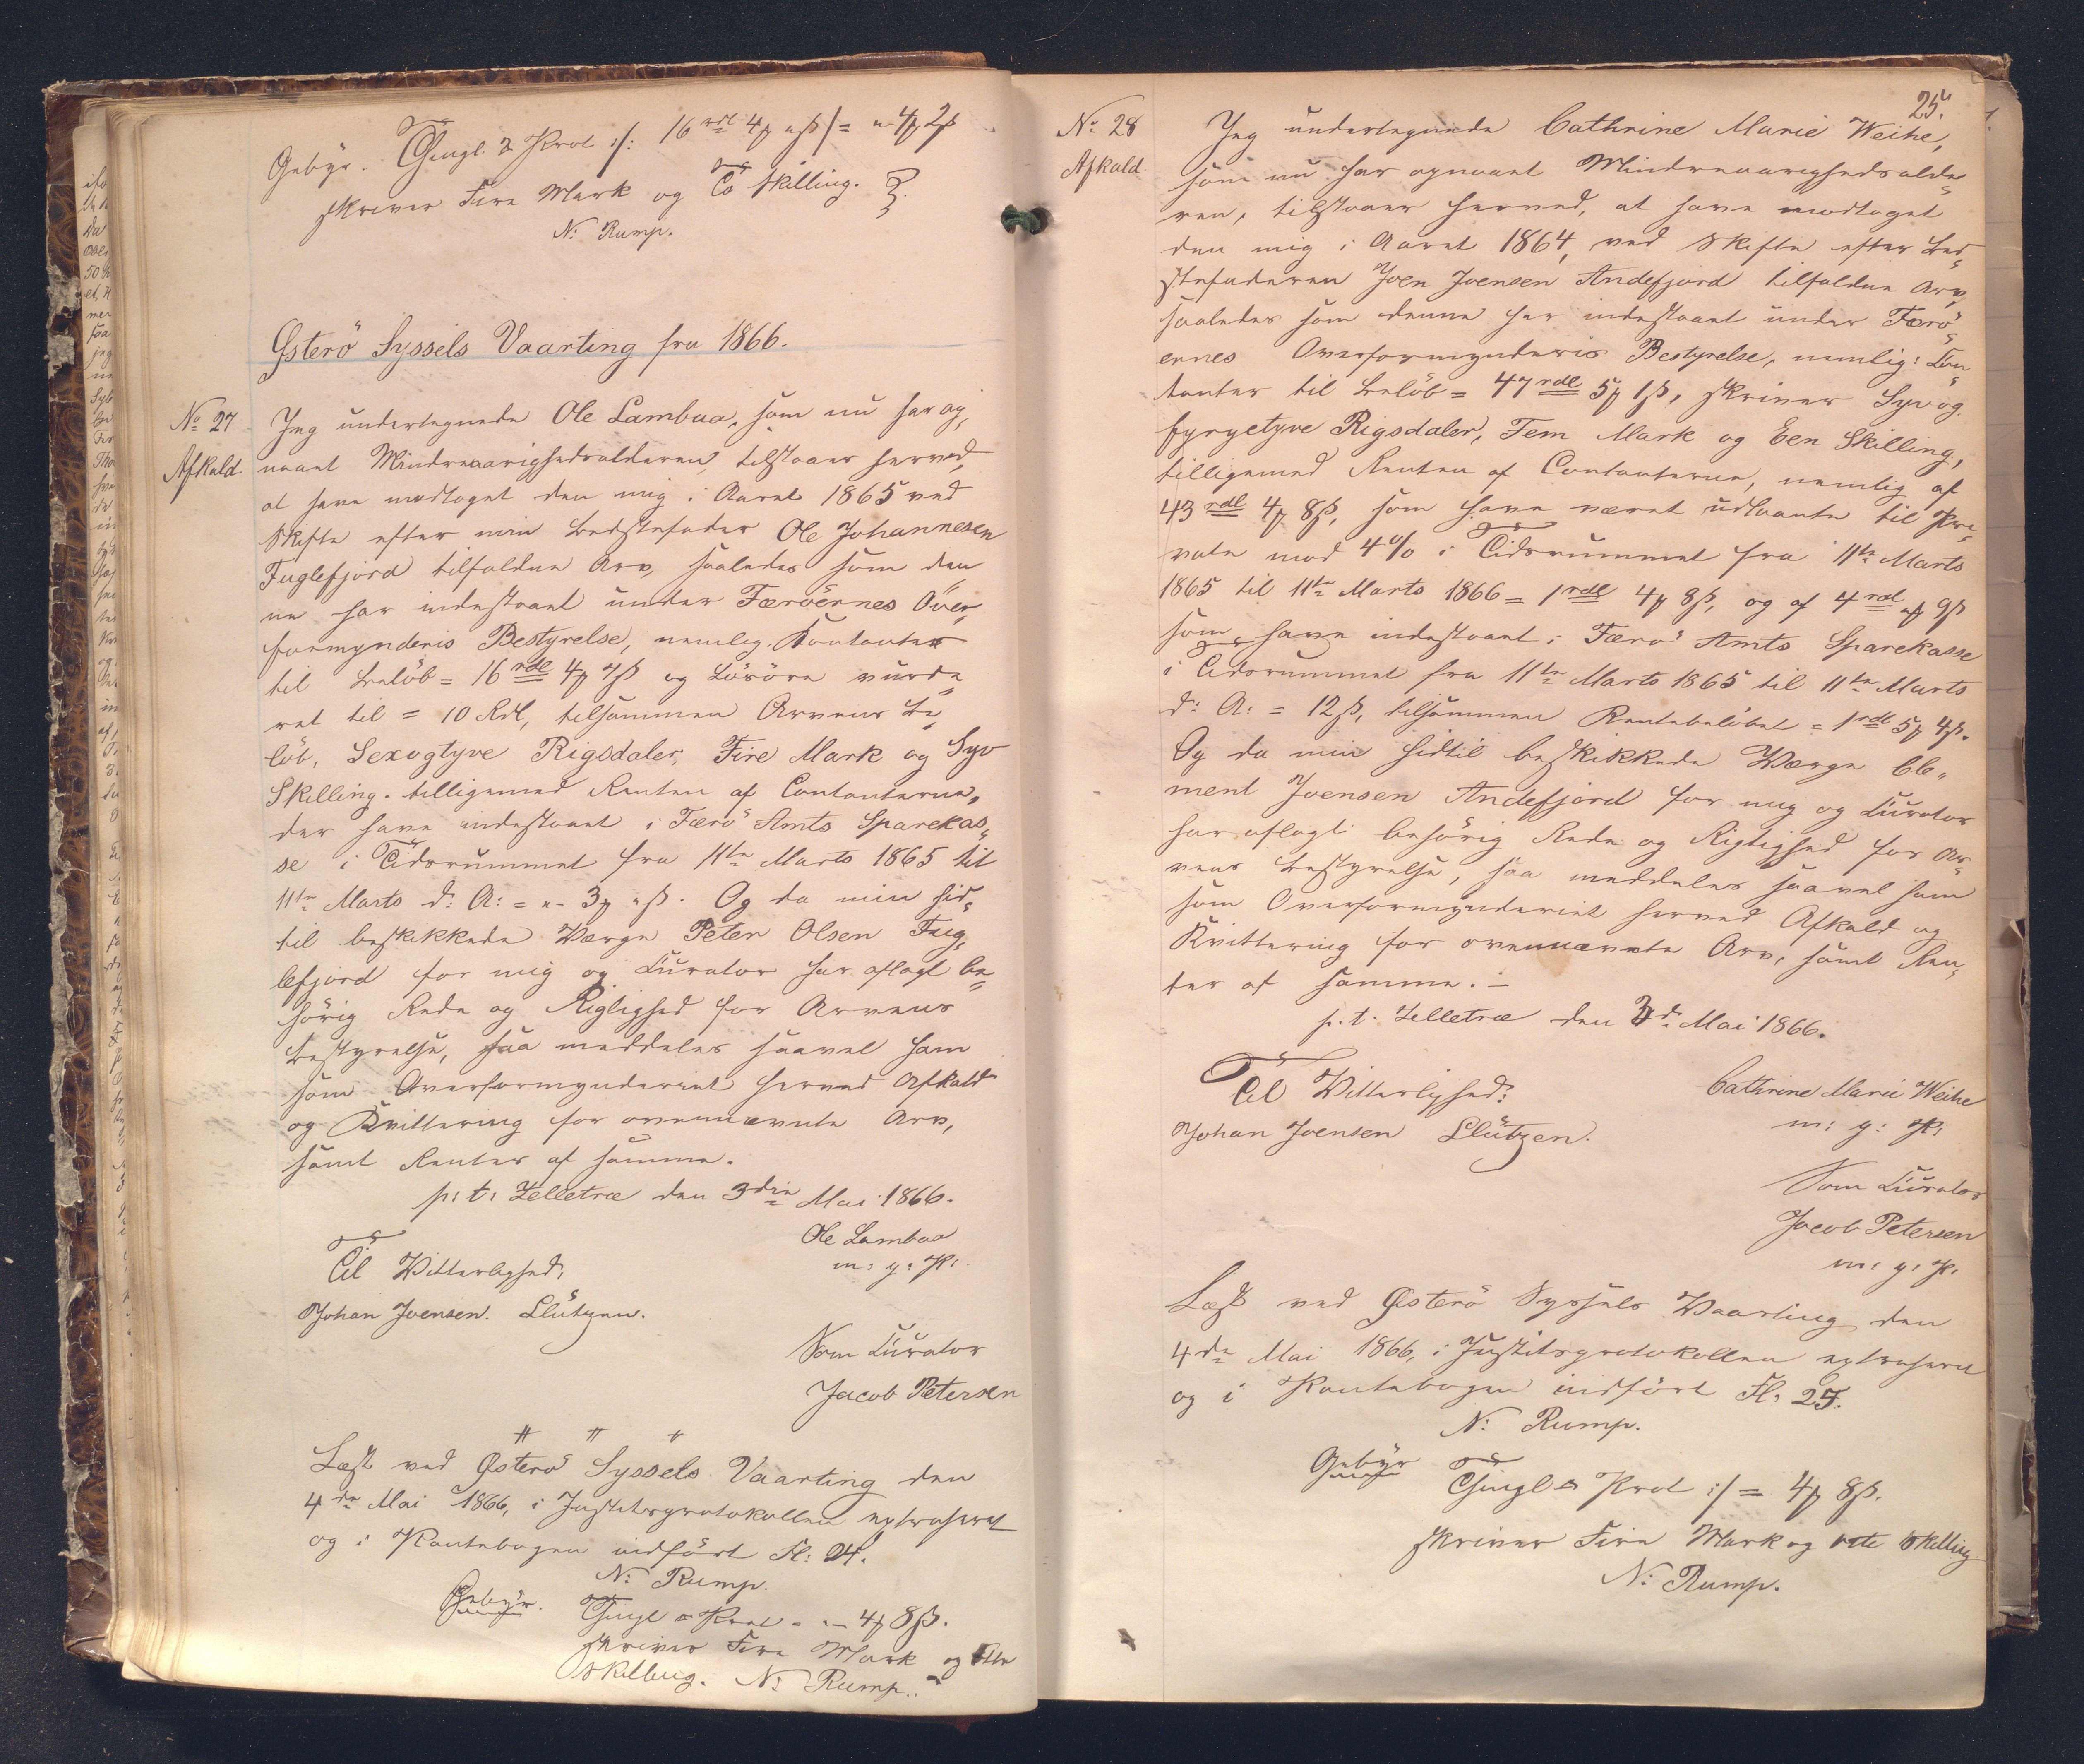 Gebyr. Thingl & Prot :/: 16 rdl 4 ₰ " ß /= "- 4 ₰ 2 ß
skriver Fire Mark og To Skilling.
N: Rump.
Østerö Syssels Vaarting fra 1866.
No 27
Afkald.
Jeg undertegnede Ole Lambaa, som nu har op„
naaet Mindreaarighedsalderen, tilstaaer herved,
at have modtaget den mig i Aaret 1865 ved
Skifte efter min Bedstefader Ole Johannesen
Fuglefjord tilfaldne Arv, saaledes som den„
ne har indestaaet under Færöernes Over„
formynderis Bestyrelse, nemlig. Contanter
til Beløb = 16 rdl 4 ₰ 7 ß og Lösöre vurde„
ret til = 10 Rdl, tilsammen Arvens Be„
löb, Sexogtyve Rigsdaler, Fire Mark og Syv
Skilling. tilligemed Renten af Contanterne,
der have indestaaet i Færö Amts Sparekas„
se i Tidsrummet fra 11te Marts 1865 til
11te Marts d: A: = "- 3 ₰ " ß. Og da min hid„
til beskikkede Værge Peter Olsen Fug„
lefjord for mig og Curator har aflagt be„
hörig Rede og Rigtighed for Arvens
Bestyrelse, saa meddeles saavel ham
som Overformynderiet herved Afkald
og Kvittering for ovennævnte Arv,
samt Renter af samme.
p: t: Zelletræ den 3die Mai 1866.
Ole Lambaa
m: g: P:
Til Vitterlighed:
Johan Joensen. Llützen.
Som Curator
Jacob Petersen
" " "
Læst ved Østerö Syssels Vaarting den
4de Mai 1866, i Justitsprotokollen extraheret
og i Pantebogen indfört Fl: 24.
N: Rump.
Gebyr. Thingl & Prot = "- 4 ₰ 8 ß.
skriver Fire Mark og otte
Skilling. N: Rump.
25.
No 28
Afkald
Jeg undertegnede Cathrine Marie Weihe,
som nu har opnaaet Mindreaarighedsalde„
ren, tilstaaer herved, at have modtaget
den mig i Aaret 1864, ved Skifte efter Bed„
stefaderen Joen Joensen Andefjord tilfaldne Arv,
saaledes som denne har indestaaet under Færö„
ernes Overformynderis Bestyrelse, nemlig: Con„
tanter til Belöb = 47 rdl 5 ₰ 1 ß, skriver Syv og
fyrgetyve Rigsdaler, Fem Mark og Een Skilling,
tilligemed Renten af Contanterne, nemlig af
43 rdl 4 ₰ 8 ß, som have været udlaante til Pri„
vate mod 4 % i Tidsrummet fra 11te Marts
1865 til 11te Marts 1866 = 1 rdl 4 ₰ 8 ß, og af 4 rdl " ₰ 9 ß
som have indestaaet i Færö Amts Sparekasse
i Tidsrummet fra 11te Marts 1865 til 11te Marts
d: A: = 12 ß, tilsammen Rentebelöbet = 1 rdl 5 ₰ 4 ß.
Og da min hidtil beskikkede Værge Cle„
ment Joensen Andefjord for mig og Curator
har aflagt behörig Rede og Rigtighed for Ar„
vens Bestyrelse, saa meddeles saavel ham
som Overformynderiet herved Afkald og
Kvittering for ovennævnte Arv, samt Ren„
ter af samme. –
p. t. Zelletræ den 3d: Mai 1866.
Til Vitterlighed:
Johan Joensen Llützen.
Cathrine Marie Weihe
m: g: P:
Som Curator
Jacob Petersen
m: g: P:
Læst ved Østerö Syssels Vaarting den
4de Mai 1866, i Justitsprotokollen extraheret
og i Pantebogen indfört Fl: 25.
N: Rump.
Gebyr Thingl & Prot :/ = 4 ₰ 8 ß.
skriver Fire Mark og otte Skilling
N: Rump.